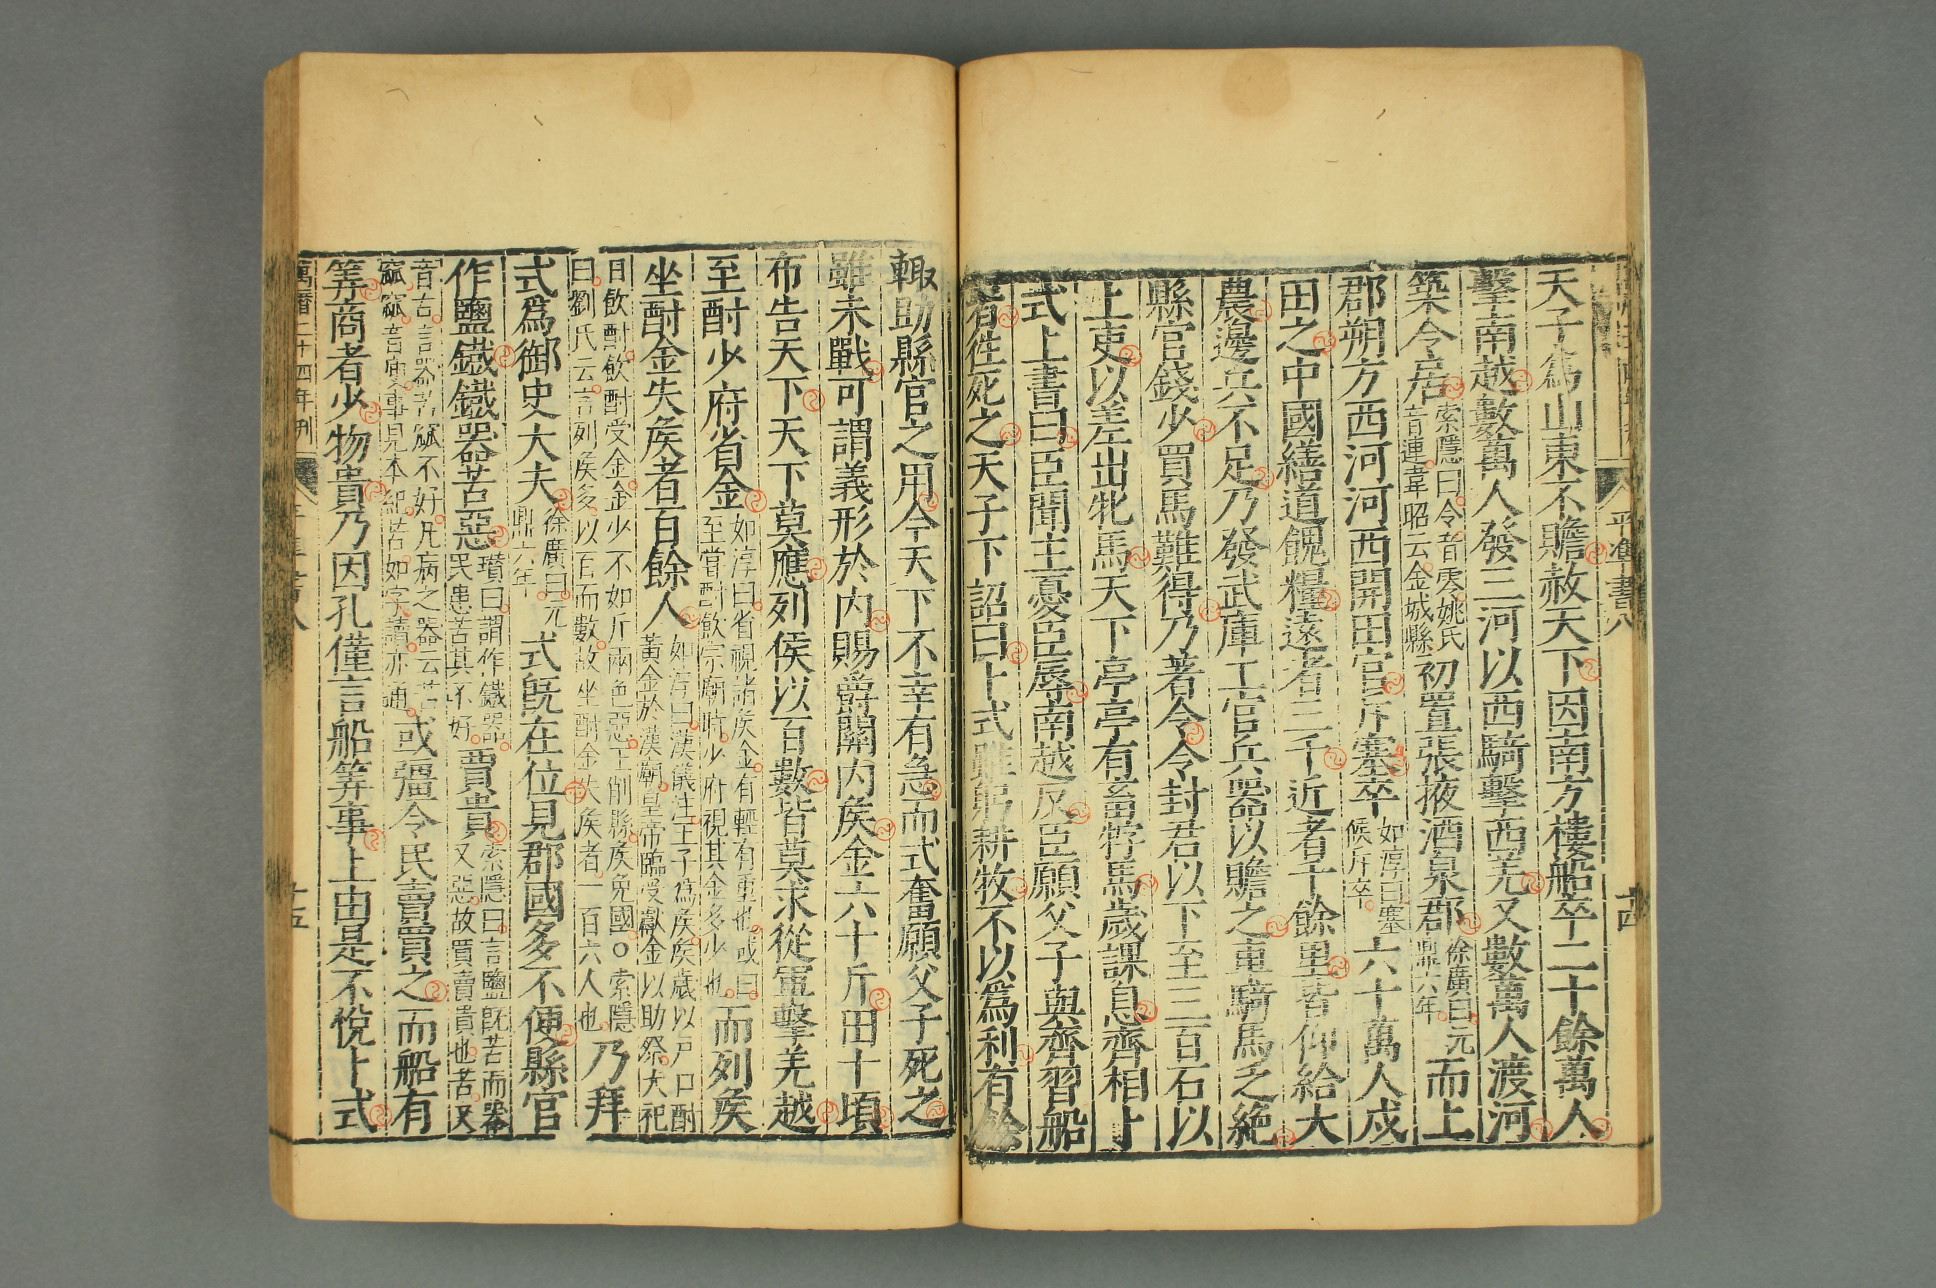 平準書八
十四
天子爲山東不贍赦天下因南方樓船卒二十餘萬人
擊南越數萬人發三河以西騎擊西羌又數萬人渡河
築令居索隱曰令音零姚氏音連韋昭云金城縣初置張掖酒泉郡徐廣曰元鼎六年而上
郡朔方西河河西開田官斥塞卒如淳曰塞候斥卒六十萬人戍
田之中國繕道餽糧遠者三千近者千餘里皆仰給大
農邊兵不足乃發武庫工官兵器以贍之車騎馬乏絕
縣官錢少買馬難得乃著令令封君以下至三百石以
上吏以差出牝馬天下亭亭有畜牸馬歲課息齊相卜
式上書曰臣聞主憂臣辱南越反臣願父子與齊習船
者徃死之天子下詔曰卜式雖躬耕牧不以爲利有餘
輙助縣官之用今天下不幸有急而式奮願父子死之
雖未戰可謂義形於內賜爵關內矦金六十斤田十頃
布告天下天下莫應列侯以百數皆莫求從軍擊羌越
至酎少府省金如淳曰省視諸矦金有輕有重也或曰至嘗酎飲宗廟時少府視其金多少也而列矦
坐酎金失矦者百餘人如淳曰漢儀注王子爲矦矦歲以戶口酎黃金於漢廟皇帝臨受獻金以助祭大祀
日飲酎飲酎受金金少不如斤兩色惡王削縣矦免國○索隱曰劉氏云言列矦多以百而數故坐酎金失矦者一百六人也乃拜
式爲御史大夫徐廣曰元鼎六年式旣在位見郡國多不便縣官
作鹽鐵鐵器苦惡瓚曰謂作鐵器民患苦其不好賈貴索隱曰言鹽旣苦而器又惡故買賣貴也苦又
音古言器苦窳不好凡病之器云苦窳窳音庾事見本紀苦如字讀亦通或彊令民賣買之而船有
筭商者少物貴乃因孔僅言船筭事上由是不悅卜式
萬曆二十四年刊
平準書八
十五